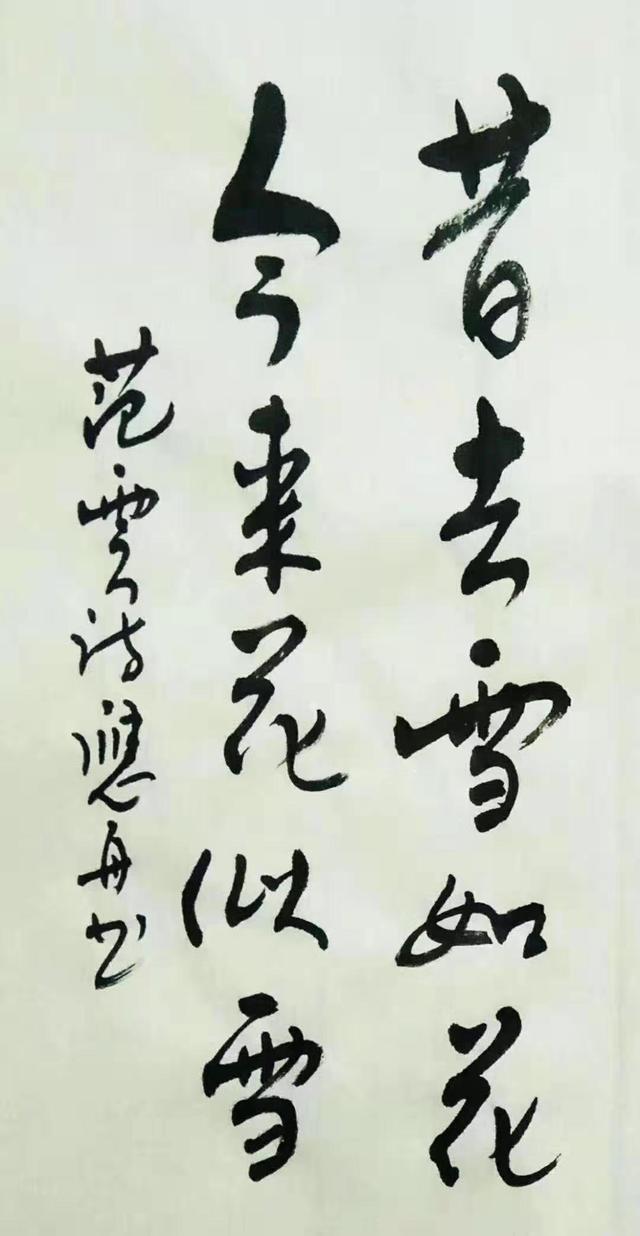 昔去雪如花
今来花似雪
范云诗應舟书